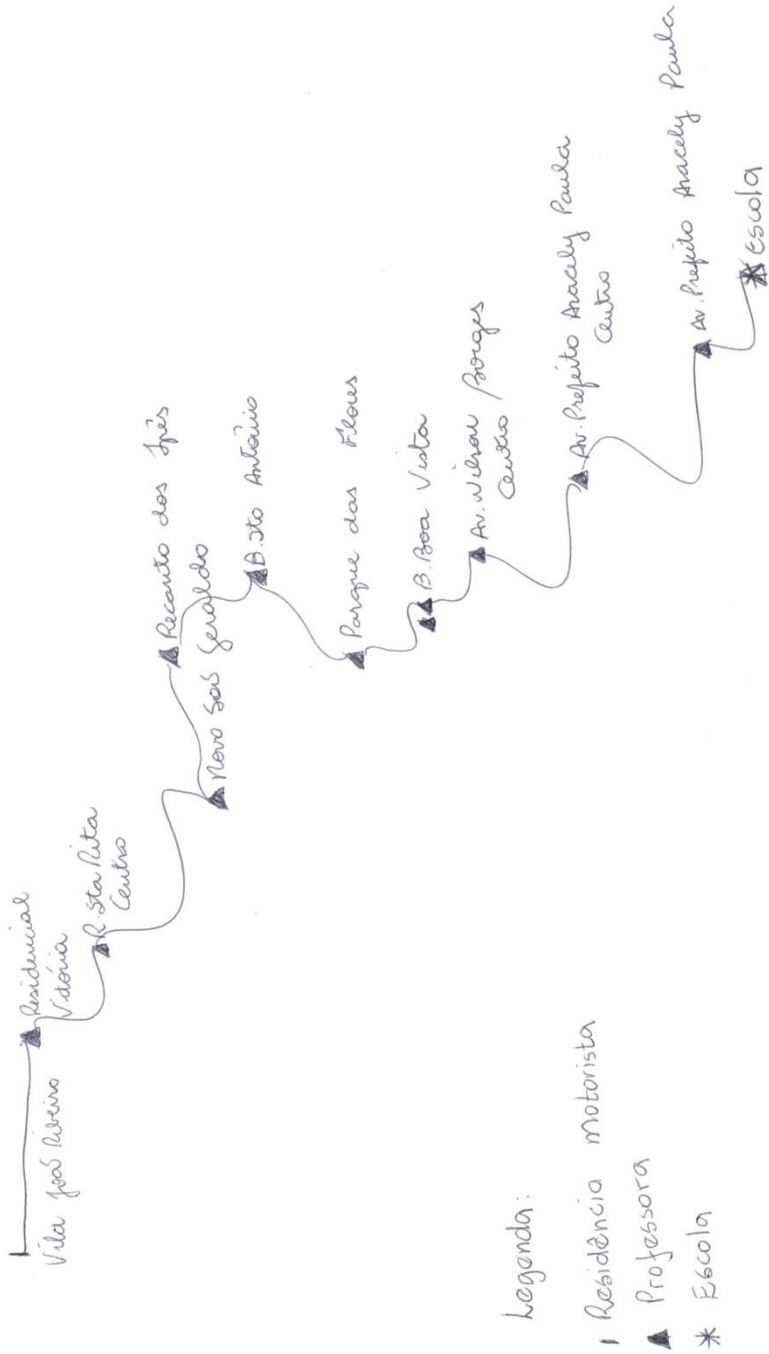 Vila João Ribeiro
Residencial
Vitória
R. Sta Rita
Centro
Novo São Geraldo
Recanto dos Ipês
B. Sto Antônio
Parque das Flores
B. Boa Vista
Av. Wilson Borges
Centro
Av. Prefeito Aracely Paula
Centro
Av. Prefeito Aracely Paula
Escola
Legenda:
Residência motorista
Professora
Escola